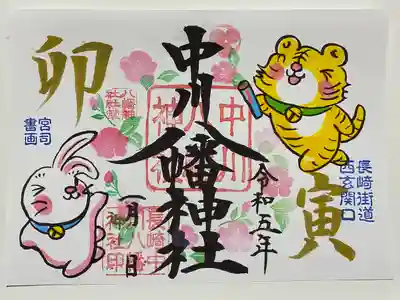 寅
長崎街道
西玄関口
令和五年
中川八幡神社
中川
八幡
神社
一月八日
長崎中
川八幡
神社印
卯
宮司
書画